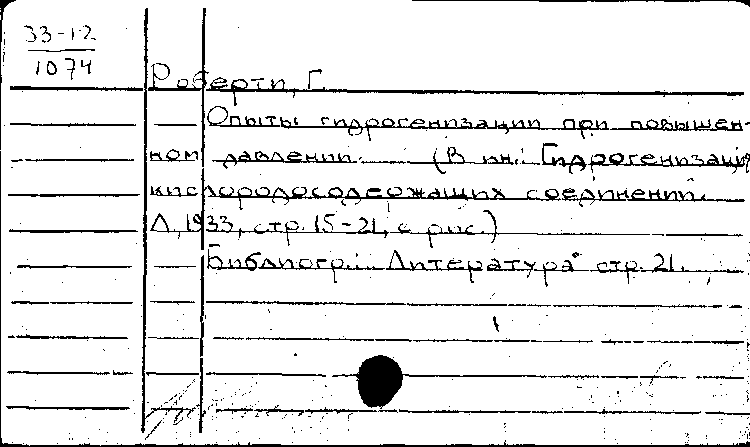 33-12
1074
Роберти, Г.
Опыты гидрогенизации при повышен-
ном давлении. (В кн.: Гидрогенизация
кислородосодержащих соединений.
Л, 1933, стр. 15-21, с рис.)
Библиогр.: "Литература" стр. 21.